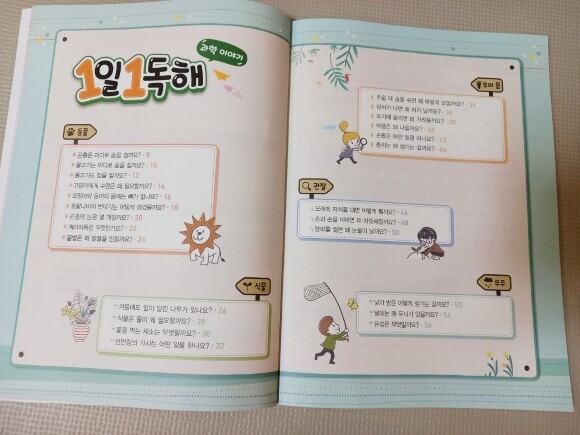 1일1독해
과학 이야기
동물
곤충은 어디로 숨을 쉴까요? · 8
물고기는 어디로 숨을 쉴까요? · 10
물고기도 잠을 잘까요? · 12
고양이에게 수염은 왜 필요할까요? · 14
오징어와 문어의 몸에는 뼈가 없나요? · 16
호랑나비의 번데기는 어떻게 생겼을까요? · 18
곤충의 눈은 몇 개일까요? · 20
개미지옥은 무엇인가요? · 22
꿀벌은 왜 벌집을 만들까요? · 24
식물
겨울에도 잎이 달린 나무가 있나요? · 26
식물은 물이 왜 필요할까요? · 28
꽃을 먹는 채소는 무엇일까요? · 30
선인장의 가시는 어떤 일을 하나요? · 32
우리 몸
추울 때 숨을 쉬면 왜 하얗게 보일까요? · 34
상처가 나면 왜 피가 날까요? · 36
모기에 물리면 왜 가려울까요? · 38
하품은 왜 나올까요? · 40
손톱은 어떤 일을 하나요? · 42
충치는 왜 생기는 걸까요? · 44
관찰
모래에 자석을 대면 어떻게 될까요? · 46
손과 손을 비비면 왜 따뜻해질까요? · 48
양파를 썰면 왜 눈물이 날까요? · 50
우주
낮과 밤은 어떻게 생기는 걸까요? · 52
달에는 왜 무늬가 있을까요? · 54
유성은 무엇일까요? · 56